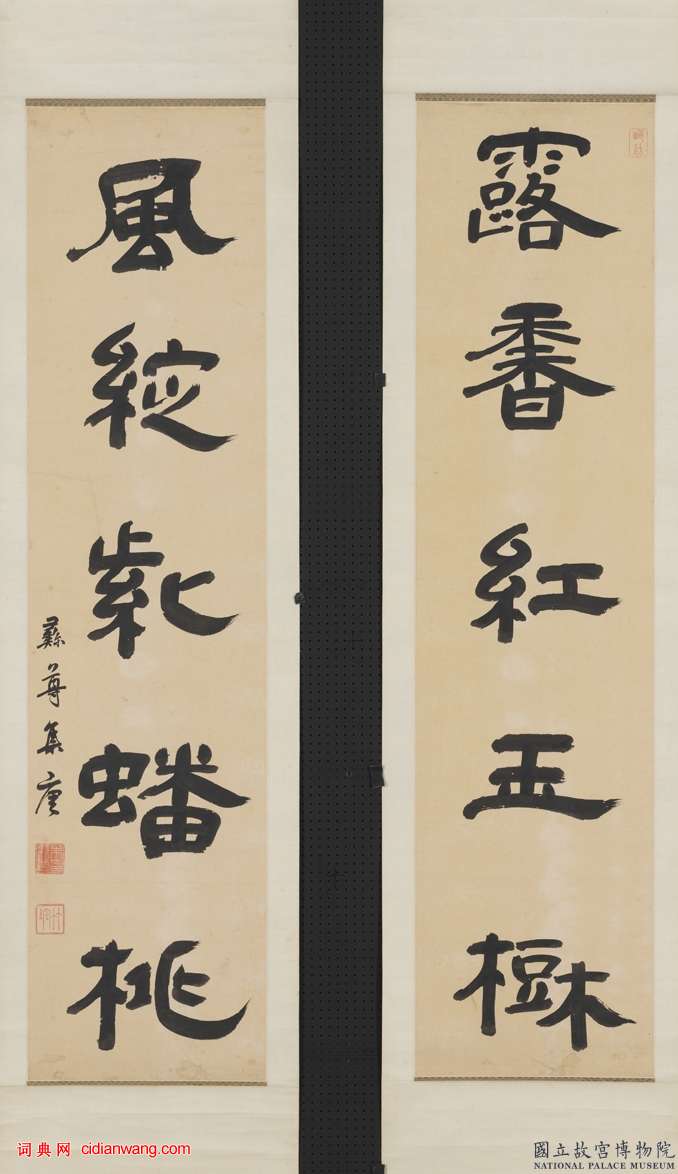 露香紅玉樹
風綻紫蟠桃
彝尊集唐
词典网 cidianwang.com
國立故宮博物院
NATIONAL PALACE MUSEUM